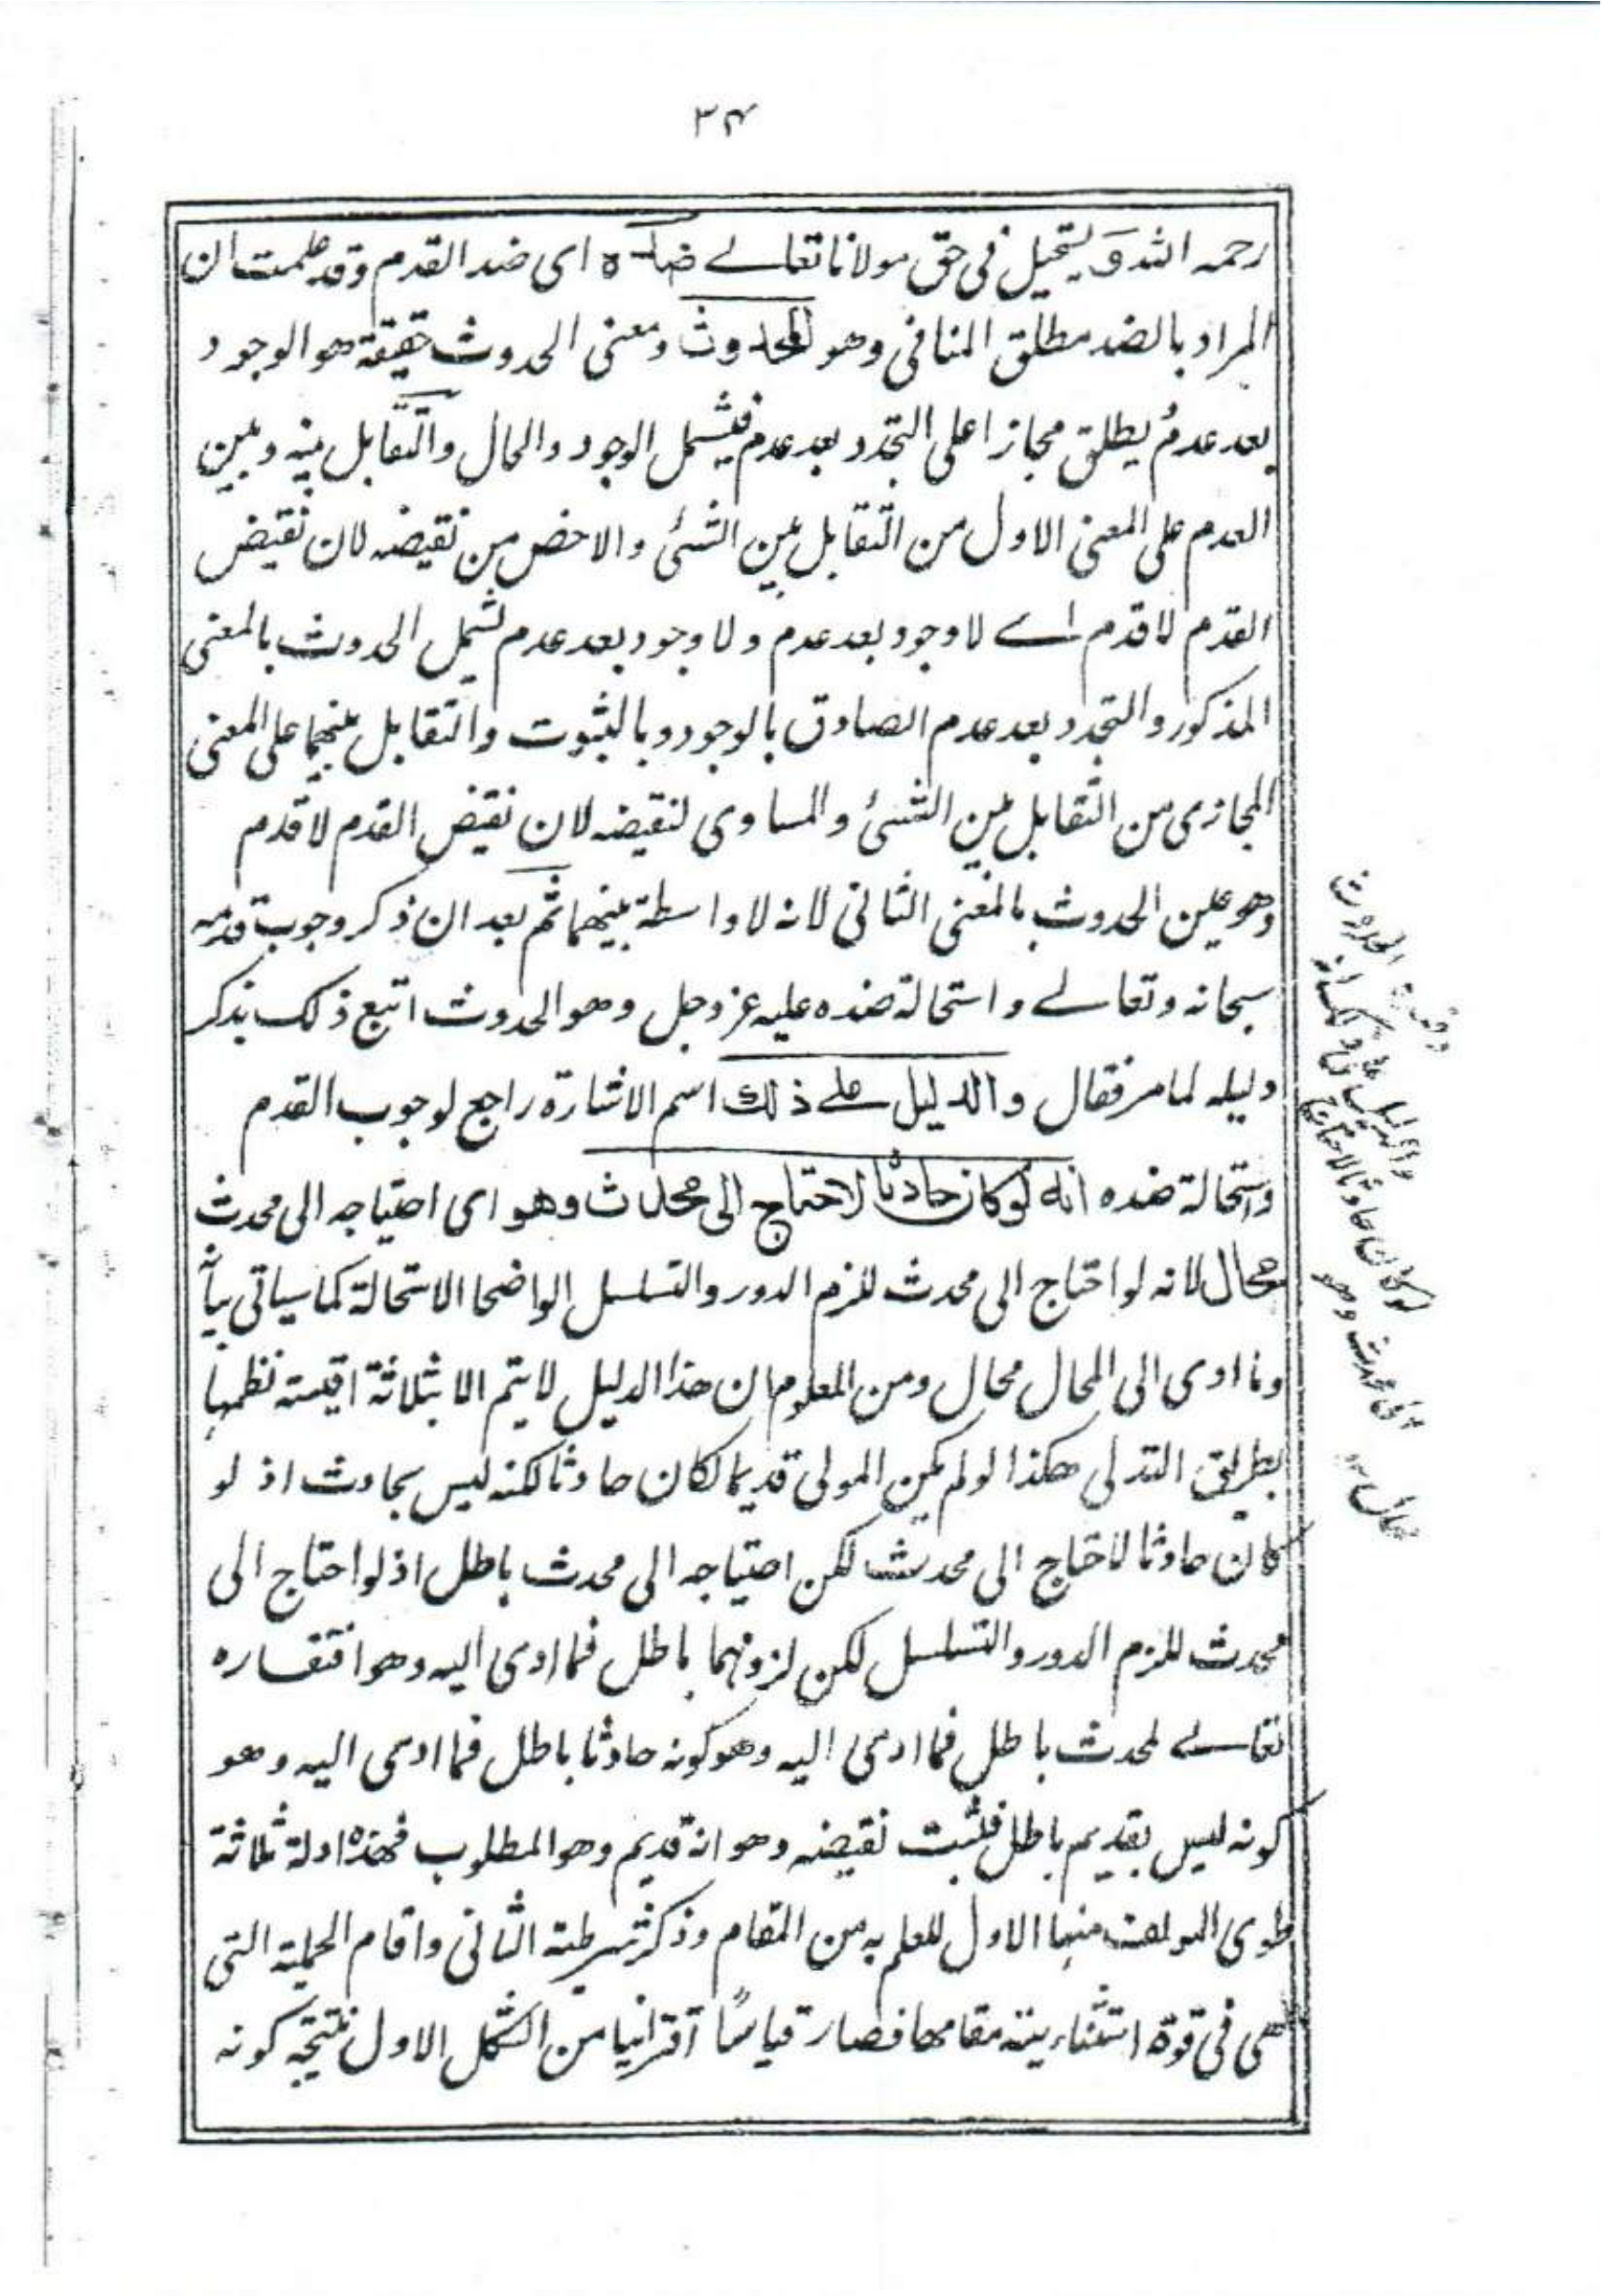 ٣٤
رحمه الله ويستحيل في حق مولانا تعالى ضده اى ضد القدم وقد علمت ان
المراد بالضد مطلق المنافى وهو الحدوث ومعنى الحدوث حقيقة هو الوجود
بعد عدم يطلق مجازا على التجدد بعد عدم فيشمل الوجود والحال والتقابل بينه وبين
العدم على المعنى الاول من التقابل بين الشئ والاخص من نقيضه لان نقيض
القدم لا قدم اى لا وجود بعد عدم ولا وجود بعد عدم تشمل الحدوث بالمعنى
المذكور والتجدد بعد عدم الصادق بالوجود وبالثبوت والتقابل بينهما على المعنى
المجازى من التقابل بين الشئ والمساوى لنقيضه لان نقيض القدم لا قدم
وهو عين الحدوث بالمعنى الثانى لانه لا واسطة بينهما ثم بعد ان ذكر وجوب قدمه
سبحانه وتعالى واستحالة ضده عليه عز وجل وهو الحدوث اتبع ذلك بذكر
دليله لما مر فقال والدليل على ذلك اسم الاشارة راجع لوجوب القدم
واستحالة ضده انه لو كان حادثا لاحتاج الى محدث وهو اى احتياجه الى محدث
محال لانه لو احتاج الى محدث للزم الدور والتسلسل الواضحا الاستحالة كما سياتى بيا
وما ادى الى المحال محال ومن المعلوم ان هذا الدليل لا يتم الا بثلاثة اقيسة نظمها
بطريق التدلى هكذا لو لم يكن المولى قديما لكان حادثا لكنه ليس بحادث اذ لو
كان حادثا لاحتاج الى محدث لكن احتياجه الى محدث باطل اذ لو احتاج الى
محدث للزم الدور والتسلسل لكن لزومهما باطل فما ادى اليه وهو افتقاره
تعالى لمحدث باطل فما ادى اليه وهو كونه حادثا باطل فما ادى اليه وهو
كونه ليس بقديم باطل فثبت نقيضه وهو انه قديم وهو المطلوب فهذه ادلة ثلاثة
طوى المولف منها الاول للعلم به من المقام وذكر شرطية الثانى واقام الحملية التى
هى فى قوة استثنائيته مقامها فصار قياسًا اقترانيا من الشكل الاول نتيجته كونه
الحدوث
والدليل على ذلك انه
لو كان حادثا لاحتاج
الى محدث وهو
محال